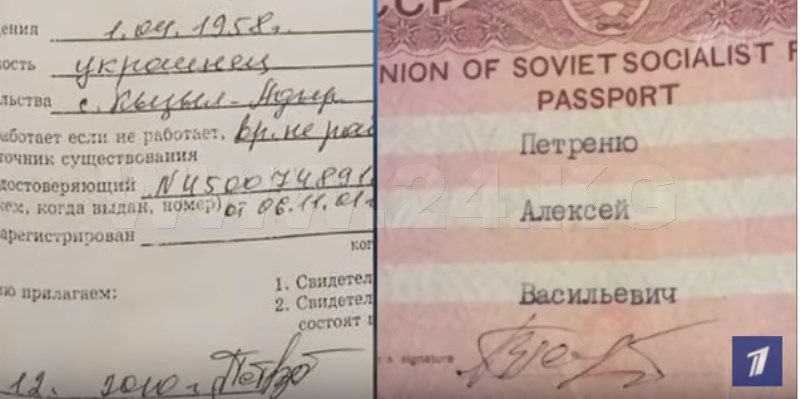 ения 1.04.1958г.
ость украинец
льства с. Кызыл-Адыр
аботает если не работает, вр. не раб
точник существования
достоверяющий N4500748916
кем, когда выдан, номер) от 06.11.01г
арегистрирован
ког
ю прилагаем:
1. Свидетел
2. Свидетел
состоят в
12. 2010 г.
CCP
NION OF SOVIET SOCIALIST R
PASSPORT
Петреню
Алексей
Васильевич
s signature
www.24.KG
1